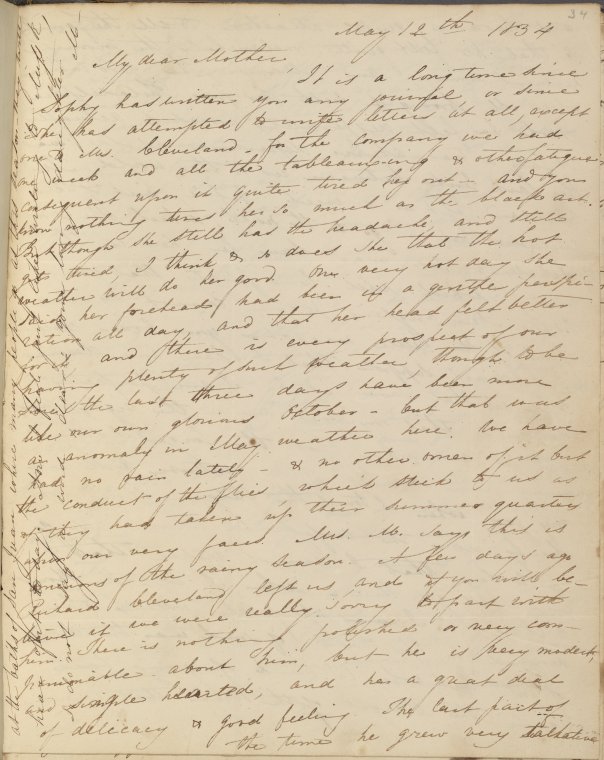 34
May 12th 1834
My dear Mother
It is a long time since
Sophy has written you any journal or since
she has attempted to write letters at all except
one Mrs. Cleveland - for the company we had
one week and all the tableauxing & other fatigues
consequent upon it quite tired her out - and you
know nothing tires her so much as the black art.
But though she still has the headache, and still
gets tired, I think & so does she that the hot
weather will do her good. One very hot day she
said her forehead had been in a gentle perspi-
ration all day, and that her head felt better
for it - and there is every prospect of our
having plenty of such weather though to be
sure the last three days have been more
like our own glorious October - but that was
an anomaly in May weather here. We have
had no rain lately - & no other omen of it but
the conduct of the flies which stick to us as
if they had taken up their summer quarters
upon our very faces. Mrs. M. says this is
ominous of the rainy season. A few days ago
Richard Cleveland left us and if you will be-
lieve it we were really sorry to part with
him. There is nothing polished or very com-
panionable about him, but he is very modest,
and simple hearted, and has a great deal
of delicacy & good feeling. The last part of
the time he grew very talkative
at the baths of San Juan where many people